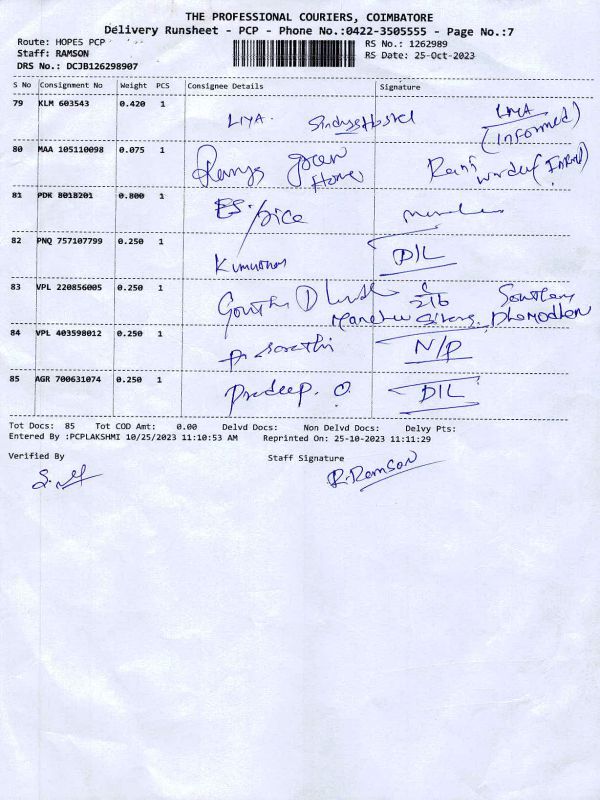 THE PROFESSIONAL COURIERS, COIMBATORE
Delivery Runsheet - PCP - Phone No.:0422-3505555 - Page No.:7
Route: HOPES PCP
RS No.: 1262989
Staff: RAMSON
RS Date: 25-Oct-2023
DRS No.: DCJB126298907
S No Consignment No Weight PCS Consignee Details Signature
79 KLM 603543 0.420 1 LIYA. LIYA
(Informed)
80 MAA 105110098 0.075 1 green Home
81 PDK 8018201 0.800 1
82 PNQ 757107799 0.250 1 D/L
83 VPL 220856005 0.250 1
84 VPL 403598012 0.250 1 N/P
85 AGR 700631074 0.250 1 Pradeep. O. D/L
Tot Docs: 85 Tot COD Amt: 0.00 Delvd Docs: Non Delvd Docs: Delvy Pts:
Entered By :PCPLAKSHMI 10/25/2023 11:10:53 AM Reprinted On: 25-10-2023 11:11:29
Verified By Staff Signature
R.Ramson